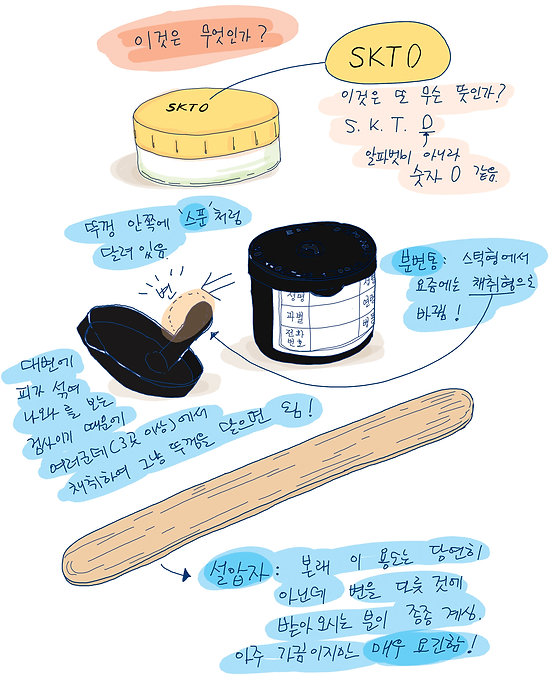 이것은 무엇인가?
SKTO
SKTO
이것은 또 무슨 뜻인가?
S. K. T. 0
알파벳이 아니라
숫자 0 같음.
뚜껑 안쪽에 '스푼'처럼
달려 있음.
변
성명
과별
전화
번호
분변통: 스틱형에서
요즘에는 채취형으로
바뀜!
대변에
피가 섞여
나와를 보는
검사이기 때문에
여러군데(3곳 이상)에서
채취하여 그냥 뚜껑을 닫으면 됨!
설압자: 본래 이 용도는 당연히
아닌데 변을 다룻 것에
받아오시는 분이 종종 계심.
아주 가끔이지만 매우 요긴함!